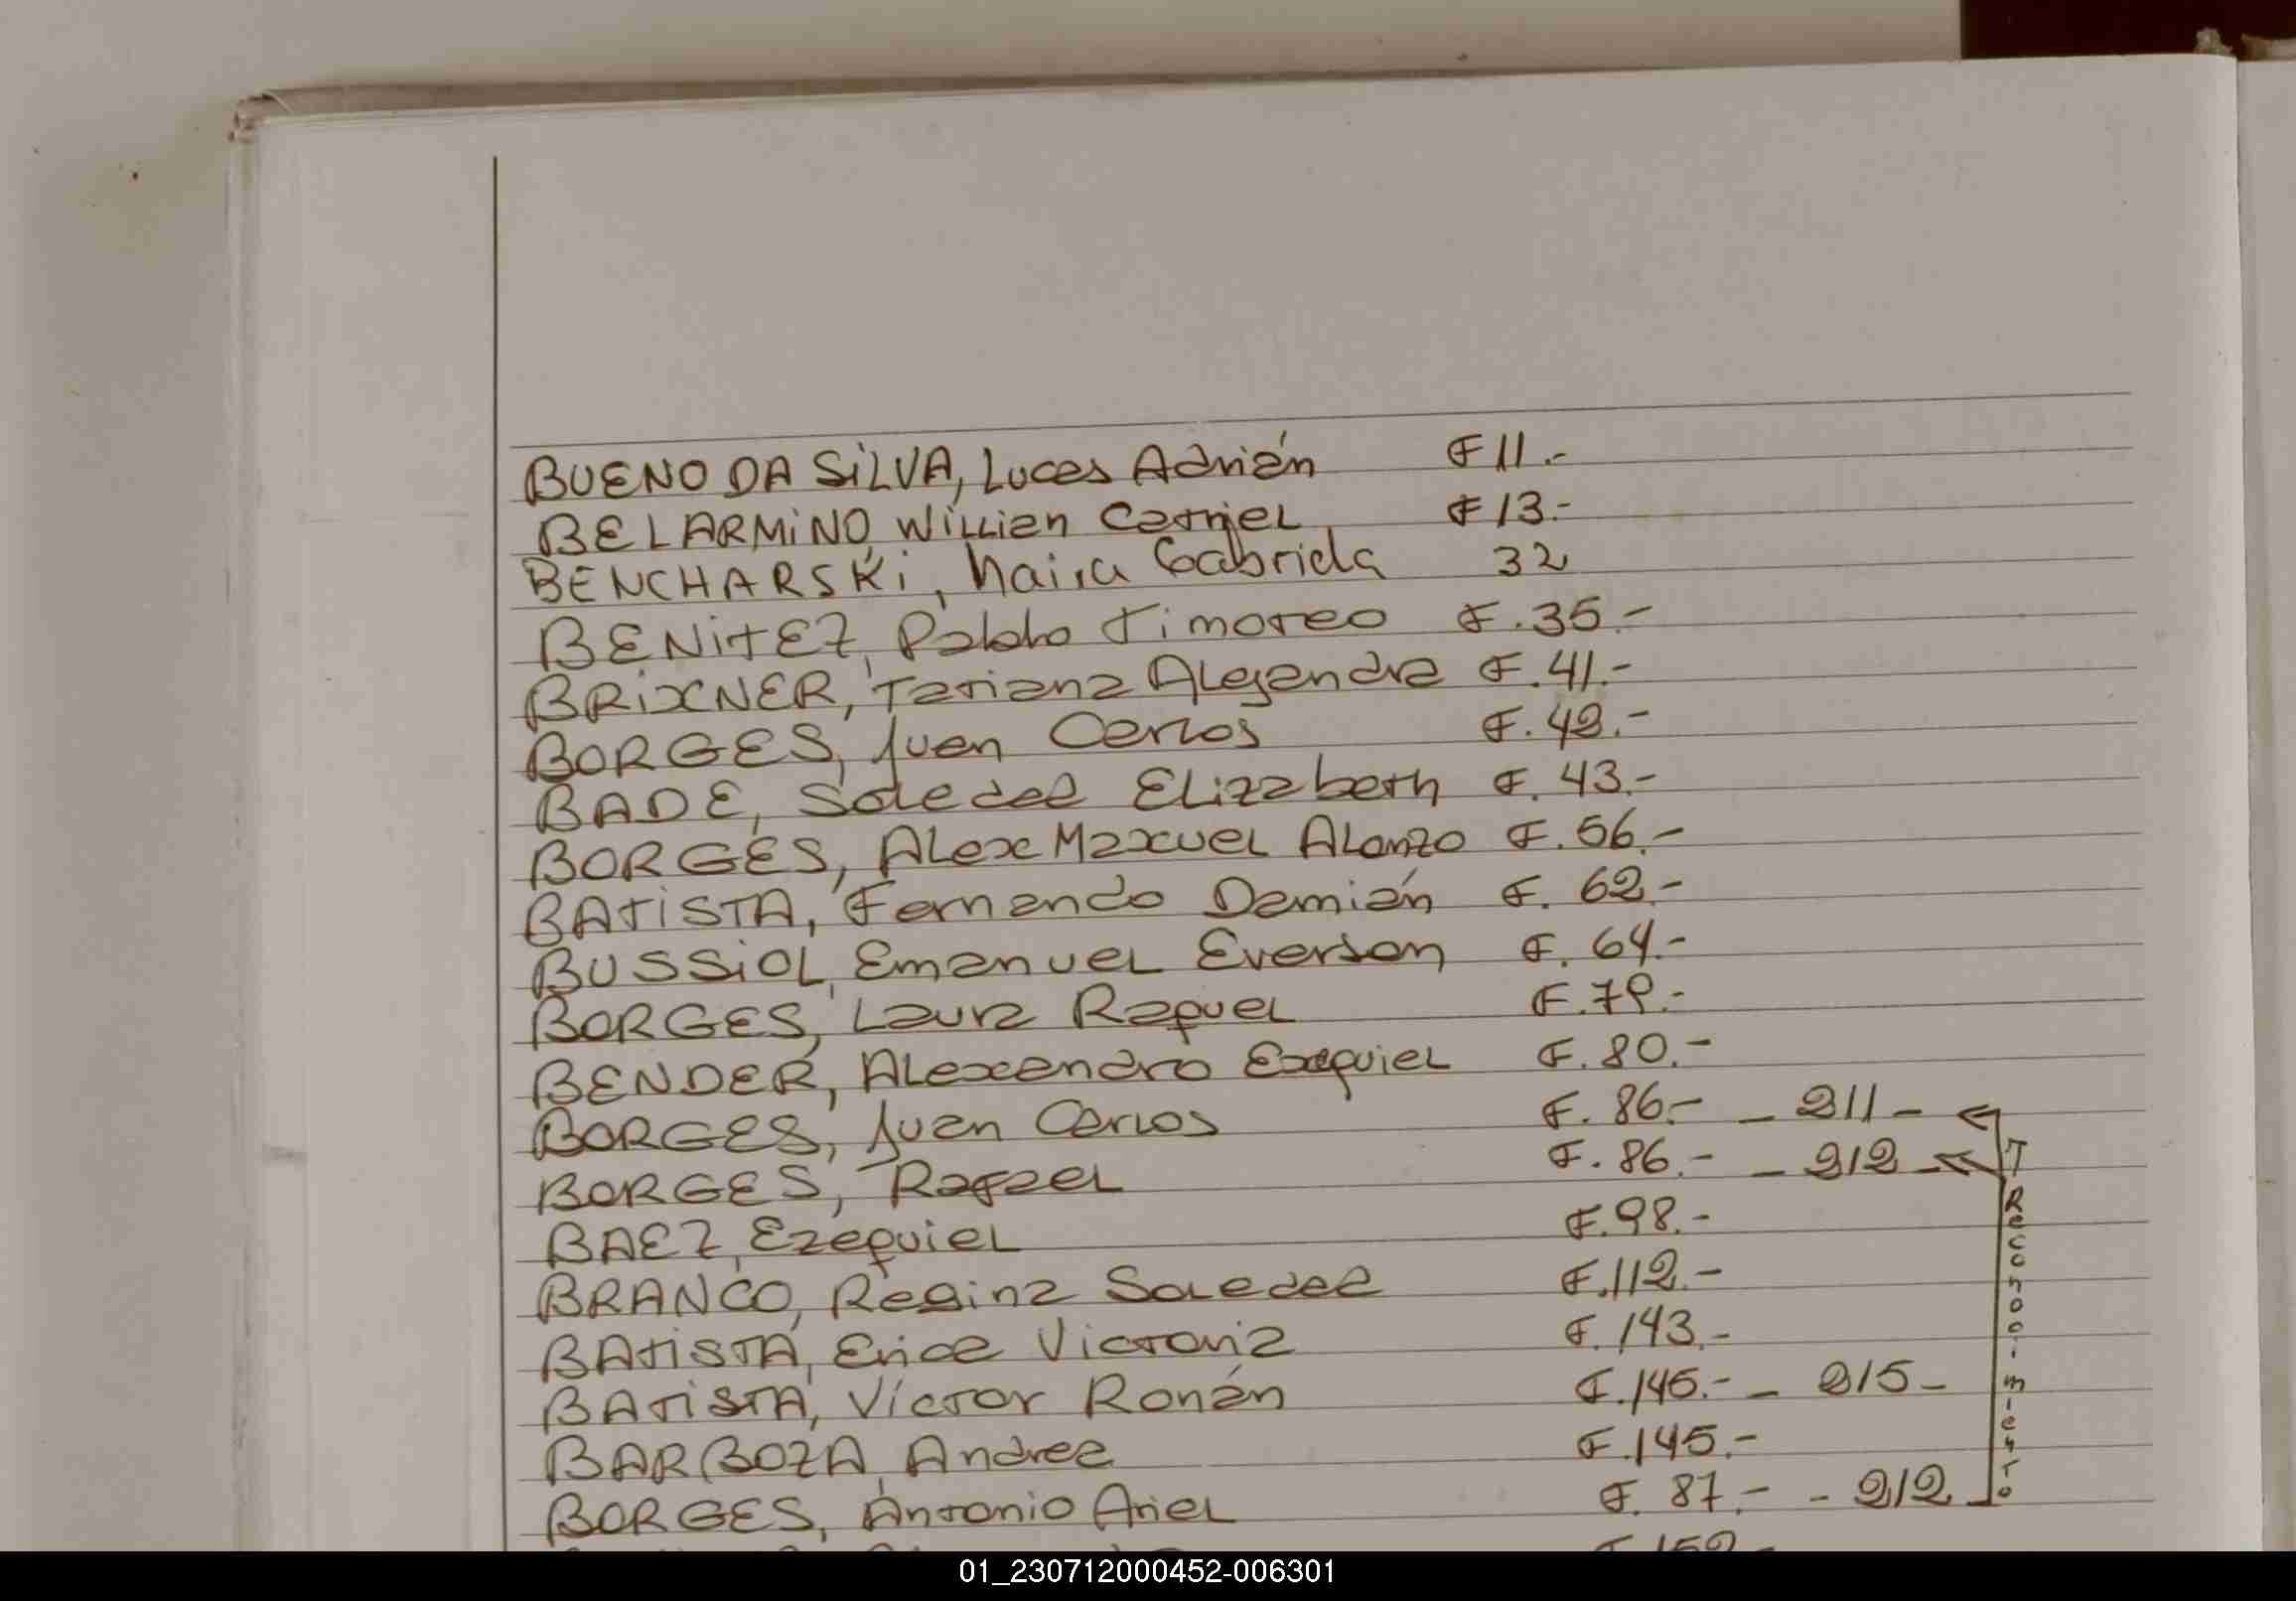 BUENO DA SILVA, Lucas Adrián F 11.-
BELARMINO, Willian Catriel F 13.-
BENCHARSKI, Naira Gabriela 32
BENITEZ, Pablo Timoteo F. 35.-
BRIXNER, Tatiana Alejandra F. 41.-
BORGES, Juan Carlos F. 42.-
BADE, Soledad Elizabeth F. 43.-
BORGES, Alex Maxuel Alonzo F. 56.-
BATISTA, Fernando Damián F. 62.-
BUSSIOL, Emanuel Everson F. 64.-
BORGES, Laura Raquel F. 79.-
BENDER, Alexandro Exequiel F. 80.-
BORGES, Juan Carlos F. 86.- - 211 -
BORGES, Rafael F. 86.- - 212 -
BAEZ, Ezequiel F. 98.-
BRANCO, Regina Soledad F. 112.-
BATISTA, Erica Victoria F. 143.-
BATISTA, Víctor Ronán F. 145.- - 215 -
BARBOZA, Andrea F. 145.-
BORGES, Antonio Ariel F. 87.- - 212
Reconocimiento
01_230712000452-006301